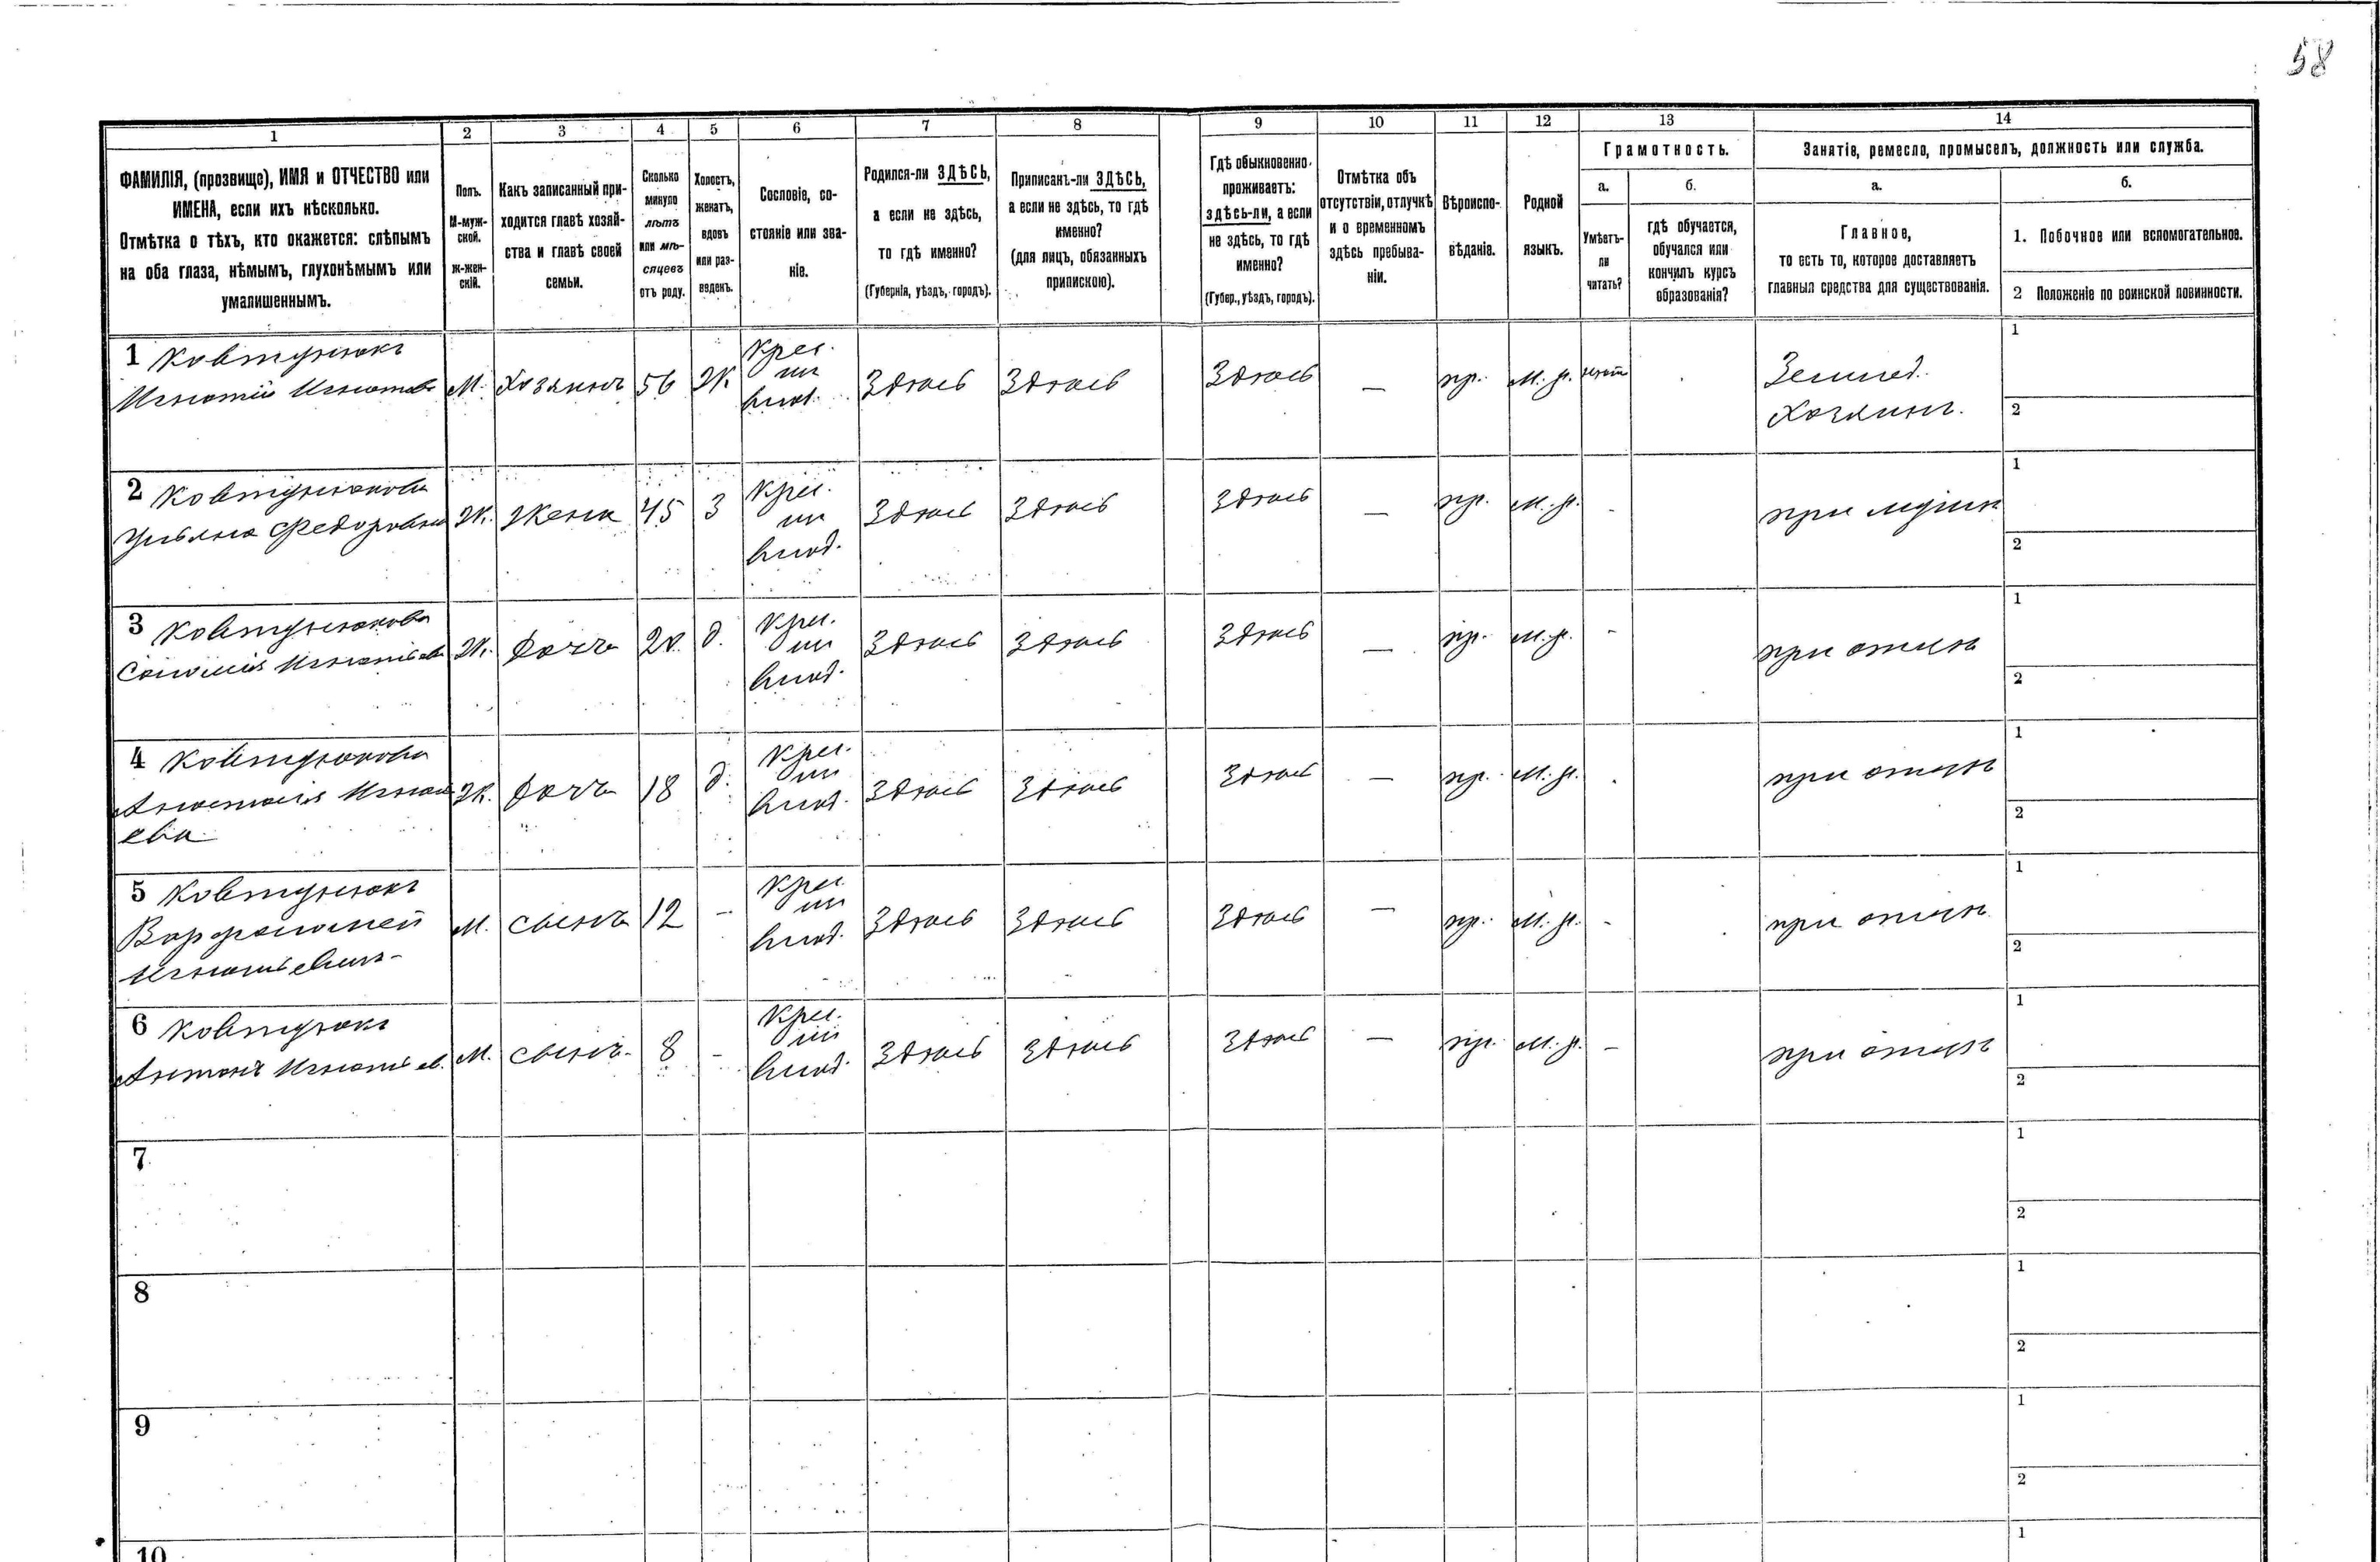 58
1 2 3 4 5 6 7 8 9 10 11 12 13 14
ФАМИЛІЯ, (прозвище), ИМЯ и ОТЧЕСТВО или
ИМЕНА, если ихъ нѣсколько.
Отмѣтка о тѣхъ, кто окажется: слѣпымъ
на оба глаза, нѣмымъ, глухонѣмымъ или
умалишеннымъ.
Полъ.
М-муж-
ской.
ж-жен-
скій.
Какъ записанный при-
ходится главѣ хозяй-
ства и главѣ своей
семьи.
Сколько
минуло
лѣтъ
или мѣ-
сяцевъ
отъ роду.
Холостъ,
женатъ,
вдовъ
или раз-
веденъ.
Сословіе, со-
стояніе или зва-
ніе.
Родился-ли ЗДѢСЬ,
а если не здѣсь,
то гдѣ именно?
(Губернія, уѣздъ, городъ).
Приписанъ-ли ЗДѢСЬ,
а если не здѣсь, то гдѣ
именно?
(для лицъ, обязанныхъ
припискою).
Гдѣ обыкновенно
проживаетъ:
здѣсь-ли, а если
не здѣсь, то гдѣ
именно?
(Губер., уѣздъ, городъ).
Отмѣтка объ
отсутствіи, отлучкѣ
и о временномъ
здѣсь пребыва-
ніи.
Вѣроиспо-
вѣданіе.
Родной
языкъ.
Грамотность.
а.
Умѣетъ-
ли
читать?
б.
гдѣ обучается,
обучался или
кончилъ курсъ
образованія?
Занятіе, ремесло, промыселъ, должность или служба.
а.
Главное,
то есть то, которое доставляетъ
главныя средства для существованія.
б.
1. Побочное или вспомогательное.
2 Положеніе по воинской повинности.
1 Ковтунюкъ
Игнатій Игнатов
М. Хозяинъ 56 Ж. Крес. из влад. Здѣсь Здѣсь Здѣсь — пр. М. р. Землед. Хозяинъ. 1 2
2 Ковтунюкова
Ульяна Федоровна
Ж. Жена 45 З Крес. из влад. Здѣсь Здѣсь Здѣсь — пр. М. р. - при мужѣ 1 2
3 Ковтунюкова
Соломія Игнатіева
Ж. Дочь д. Крес. из влад. Здѣсь Здѣсь Здѣсь — пр. М. р. - при отцѣ 1 2
4 Ковтунюкова
Анастасія Игнат
ева
Ж. Дочь 18 д. Крес. из влад. Здѣсь Здѣсь Здѣсь — пр. М. р. при отцѣ 1 2
5 Ковтунюкъ
Варфоломей
Игнатіевич
М. сынъ 12 - Крес. из влад. Здѣсь Здѣсь Здѣсь — пр. М. р. - при отцѣ 1 2
6 Ковтунюкъ
Антонъ Игнатіев.
М. сынъ 8 - Крес. из влад. Здѣсь Здѣсь Здѣсь — пр. М. р. - при отцѣ 1 2
7 1 2
8 1 2
9 1 2
10 1